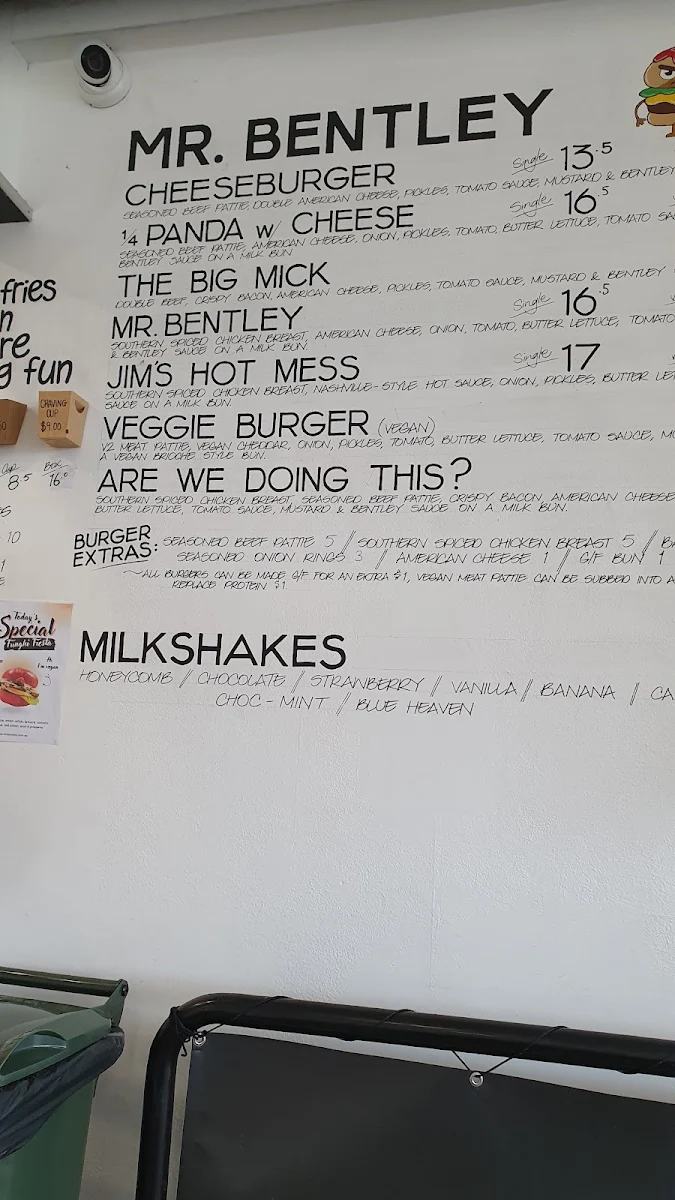 MR. BENTLEY
CHEESEBURGER Single 13.5
SEASONED BEEF PATTIE, DOUBLE AMERICAN CHEESE, PICKLES, TOMATO SAUCE, MUSTARD & BENTLEY
1/4 PANDA w/ CHEESE Single 16.5
SEASONED BEEF PATTIE, AMERICAN CHEESE, ONION, PICKLES, TOMATO, BUTTER LETTUCE, TOMATO
BENTLEY SAUCE ON A MILK BUN
THE BIG MICK
DOUBLE BEEF, CRISPY BACON, AMERICAN CHEESE, PICKLES, TOMATO SAUCE, MUSTARD & BENTLEY
MR. BENTLEY Single 16.5
SOUTHERN SPICED CHICKEN BREAST, AMERICAN CHEESE, ONION, TOMATO, BUTTER LETTUCE, TOMATO
& BENTLEY SAUCE ON A MILK BUN.
JIM'S HOT MESS Single 17
SOUTHERN SPICED CHICKEN BREAST, NASHVILLE-STYLE HOT SAUCE, ONION, PICKLES, BUTTER
SAUCE ON A MILK BUN.
VEGGIE BURGER (VEGAN)
V2 MEAT PATTIE, VEGAN CHEDDAR, ONION, PICKLES, TOMATO, BUTTER LETTUCE, TOMATO SAUCE,
A VEGAN BRIOCHE STYLE BUN.
ARE WE DOING THIS?
SOUTHERN SPICED CHICKEN BREAST, SEASONED BEEF PATTIE, CRISPY BACON, AMERICAN CHEESE
BUTTER LETTUCE, TOMATO SAUCE, MUSTARD & BENTLEY SAUCE ON A MILK BUN.
BURGER EXTRAS: SEASONED BEEF PATTIE 5 // SOUTHERN SPICED CHICKEN BREAST 5 //
SEASONED ONION RINGS 3 // AMERICAN CHEESE 1 // G/F BUN 1
~ALL BURGERS CAN BE MADE G/F FOR AN EXTRA $1, VEGAN MEAT PATTIE CAN BE SUBBED INTO
REPLACE PROTEIN $1
MILKSHAKES
HONEYCOMB // CHOCOLATE // STRAWBERRY // VANILLA // BANANA //
CHOC-MINT // BLUE HEAVEN
fries
fun
CRAVING
CUP
$9.00
Cup Box
8.5 16.0
10
Today's
Special
Funghi Fiesta